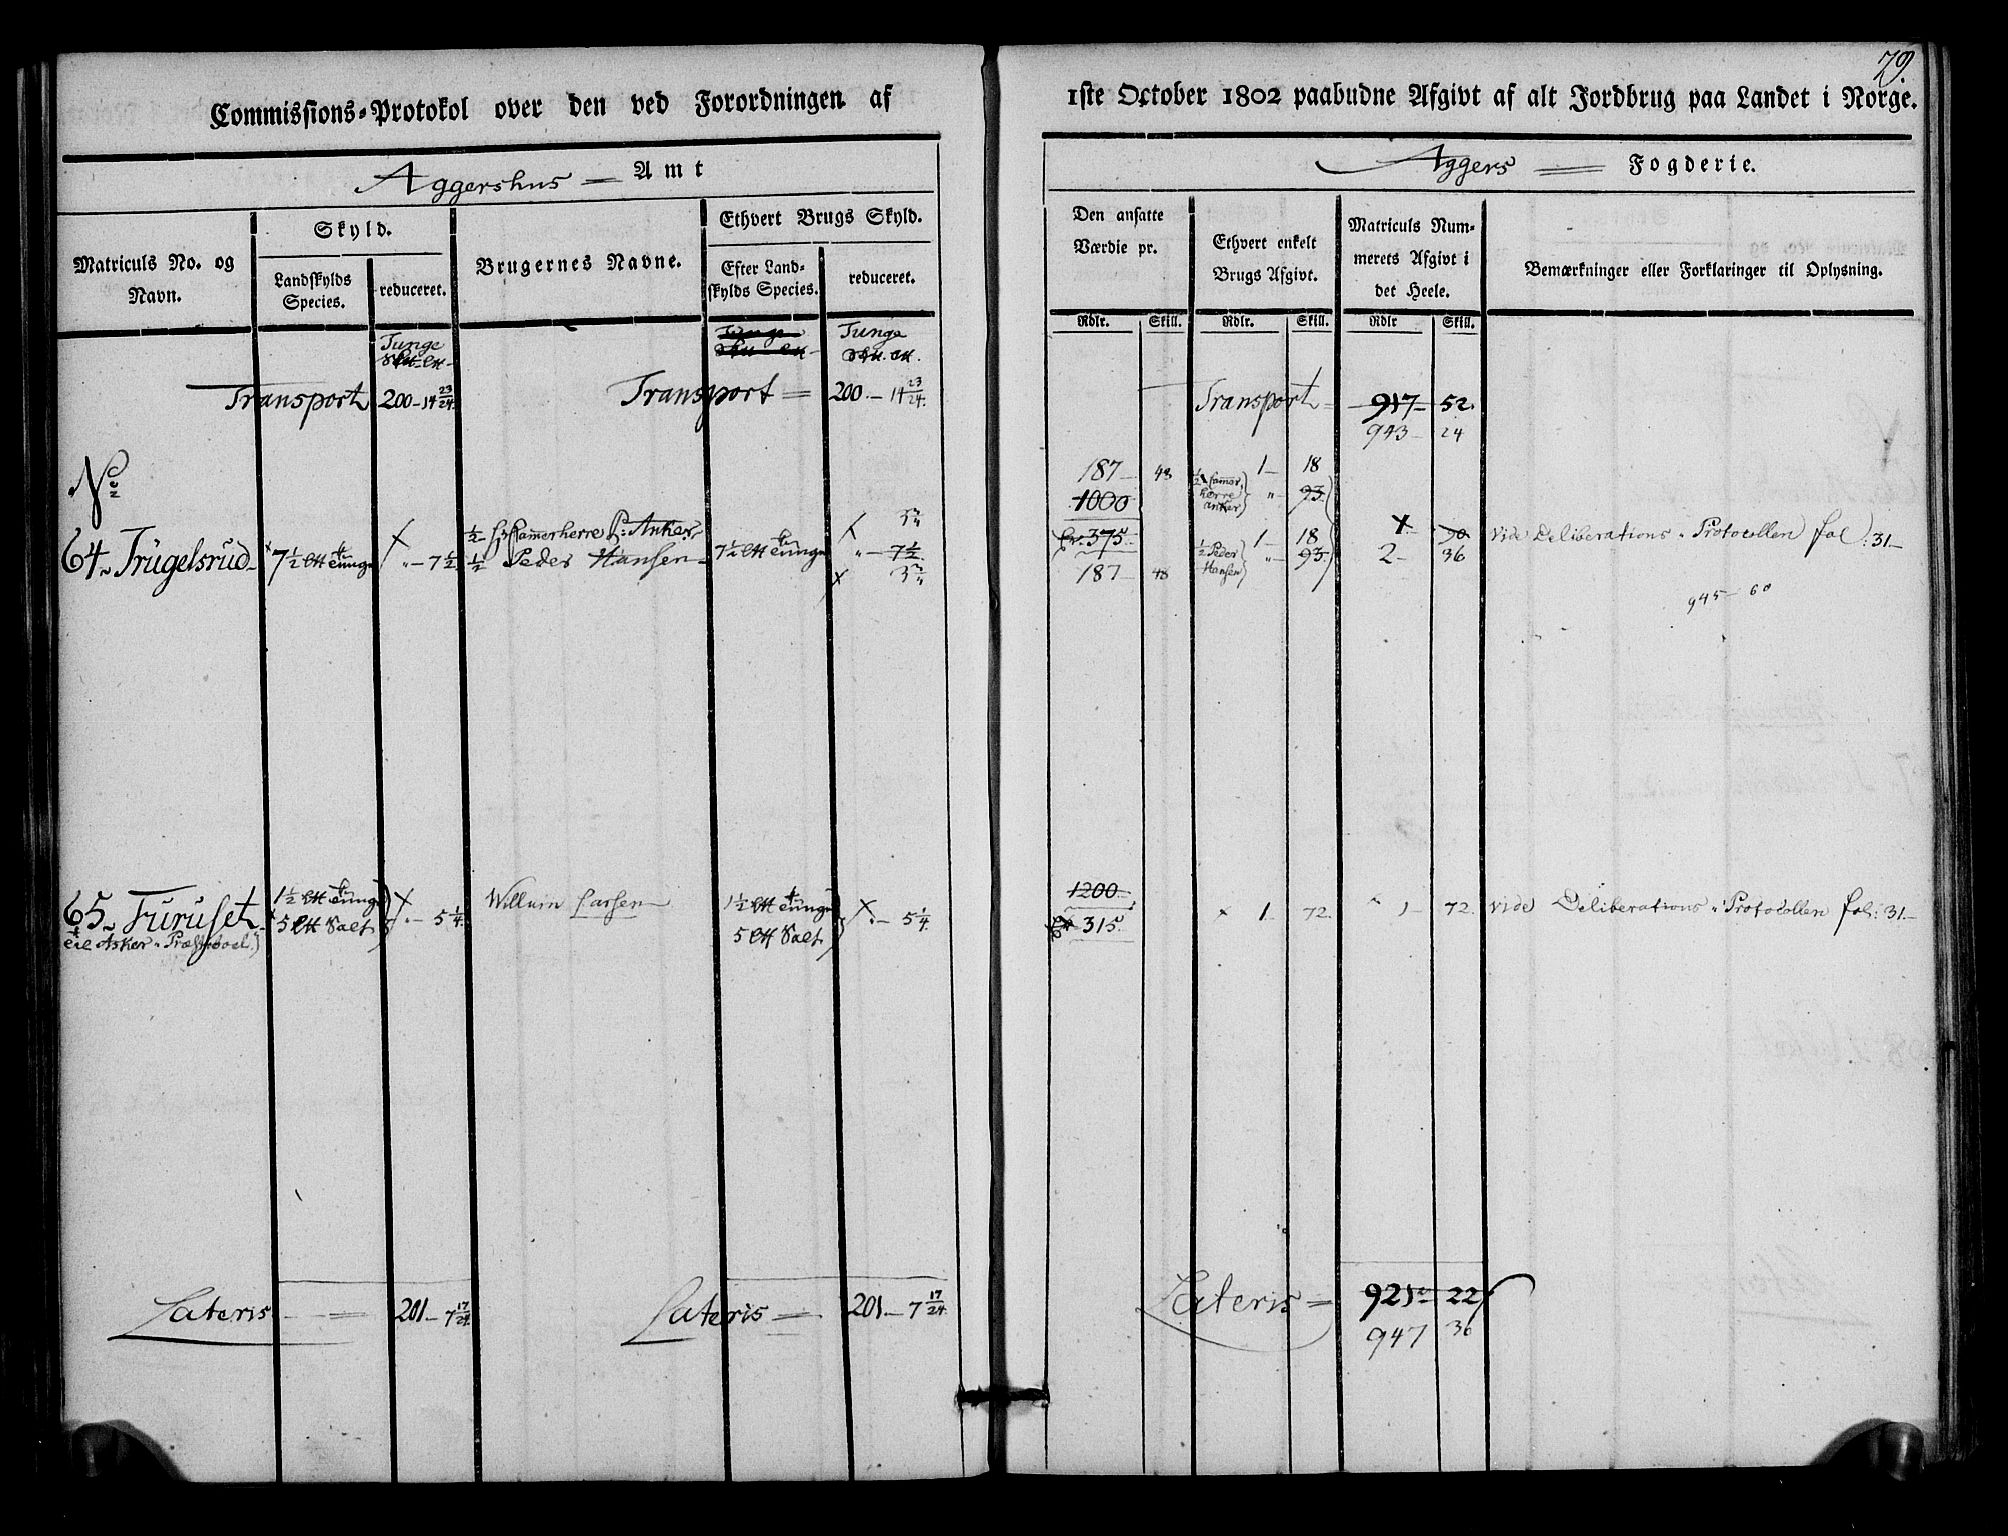 79.
Commissions-Protokol over den ved Forordningen af 1ste October 1802 paabudne Afgivt af alt Jordbrug paa Landet i Norge.
Aggershus Amt
Aggers Fogderie.
Matriculs No. og Navn.
Skyld.
Landskylds Species.
reduceret.
Brugernes Navne.
Ethvert Brugs Skyld.
Efter Land-
skylds Species.
reduceret.
Den ansatte
Værdie pr.
Ethvert enkelt
Brugs Afgivt.
Matriculs Num-
merets Afgivt i
det Heele.
Bemærkninger eller Forklaringer til Oplysning.
Rdlr. Skill. Rdlr. Skill. Rdlr Skill.
Tunge
Tunge
Tunge
Transport 200 - 14 23/24. Transport = 200. - 14 23/24. Transport = 917 - 52.
943 - 24
No
187 - 48 1/2 Camer-herre Anker 1 - 18
1000 " 93.
64. Trugelsrud 7 1/2 Tunge " - 7 1/2 1/2 Camerherre P: Anker 7 1/2 Tunge " - 7 1/2
1/2 Peder Hansen
375. 1/2 Peder Hansen 1 - 18
" 93.
187 - 48
2 - 36 vide Deliberations Protocollen fol: 31 -
945 - 60
65. Furuset 1 1/2 Tunge " - 5 1/4 Willum Larsen 1 1/2 Tunge " - 5 1/4
til Asker Præsteboel 5 Salt 5 Salt
1200
315. 1. 72. 1 - 72. vide Deliberations Protocollen fol: 31 -
Lateris 201 - 7 17/24. Lateris = 201 - 7 17/24. Lateris = 921 - 22
947 36